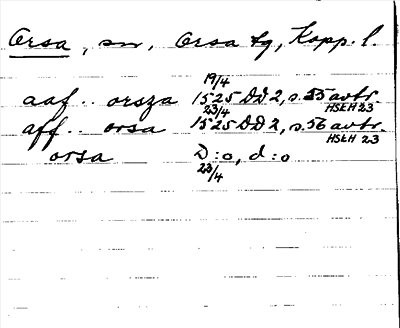 Orsa, sn, Orsa tg, Kopp. l.
19/4
aaf .. orsza 1525 DD 2, s. 55 avtr.
HSLH 23
23/4
aff .. orsa 1525 DD 2, s. 56 avtr.
HSLH 23
orsa D:o, d:o
23/4